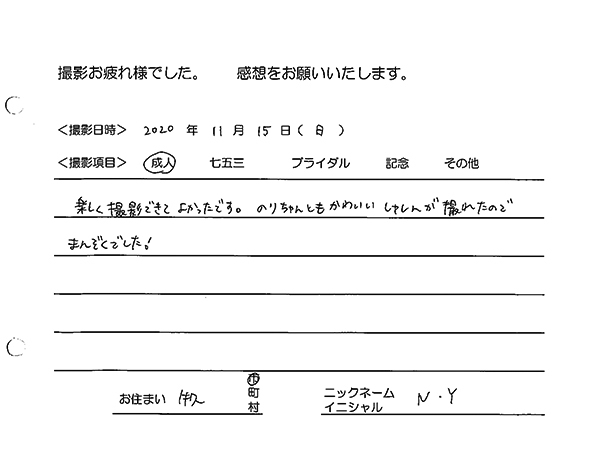 撮影お疲れ様でした。 感想をお願いいたします。
<撮影日時> 2020 年 11 月 15 日 ( 日 )
<撮影項目> 成人 七五三 ブライダル 記念 その他
楽しく撮影できてよかったです。のりちゃんともかわいいしゃしんが撮れたので
まんぞくでした!
お住まい 市 町 村
ニックネーム イニシャル N・Y